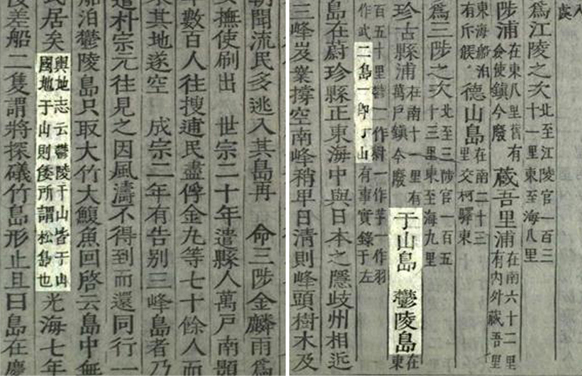 爲江陵之次北至江陵官一百三
十一里東至海八里
陟浦在東八里舊有
僉使鎮今廢
蔵吾里浦在南六十二里
有內外蔵吾里
東海船泊
有斥候
德山島在南二十三
里交柯驛東
爲三陟之次北至三陟官百五
十三里東至海九里
珍古縣浦在南十一里
萬戸鎮今廢
于山島 鬱陵島在東
百五十里鬱一作蔚一作芋一作羽一
作武二島一卽于山有事實錄于左
島在蔚珍縣正東海中與日本之隱歧州相近
三峰岌業撐空南峰稍卑日清則峰頭樹木及
朝聞流民多逃入其島再 命三陟金麟雨爲
撫使刷出 世宗二十年遣縣人萬戸南顥
率數百人往搜逋民盡俘金九等七十餘人而
其地遂空 成宗二年有告別三峰島者乃
遣朴宗元往見之因風濤不得到而還同行一
船泊鬱陵島只取大竹大鰒魚回啓云島中無
民居矣輿地志云鬱陵于山皆于山
國地于山則倭所謂松島也光海七年
倭差船二隻謂將探礒竹島形止且曰島在慶